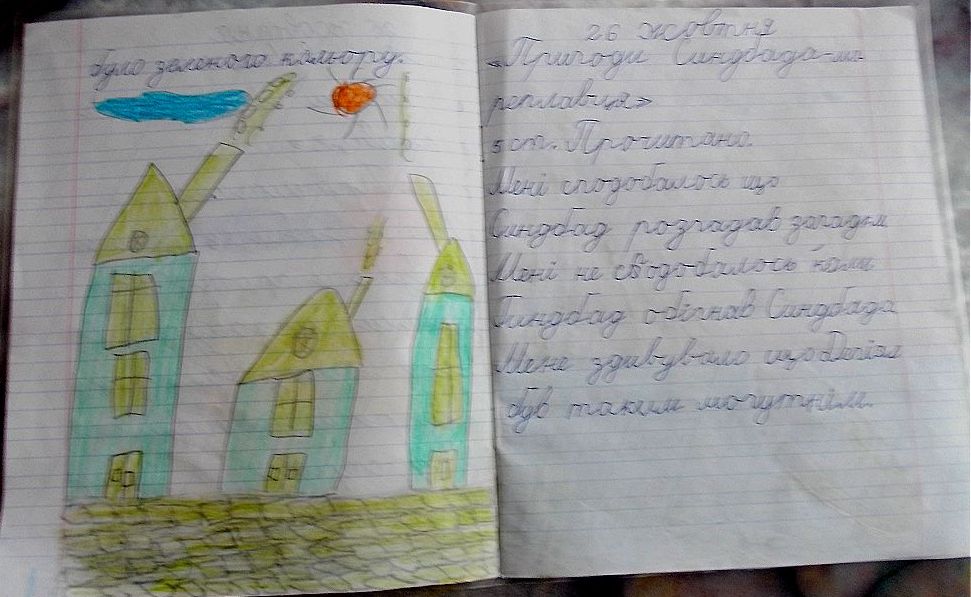 було зеленого кольору.
26 жовтня
«Пригоди Синдбада-мо
реплавця»
5 ст. Прочитано.
Мені сподобалось що
Синдбад розгадав загадки
Мені не сподобалось коли
Гиндбад обігнав Синдбада
Мене здивувало що
був таким могутнім.